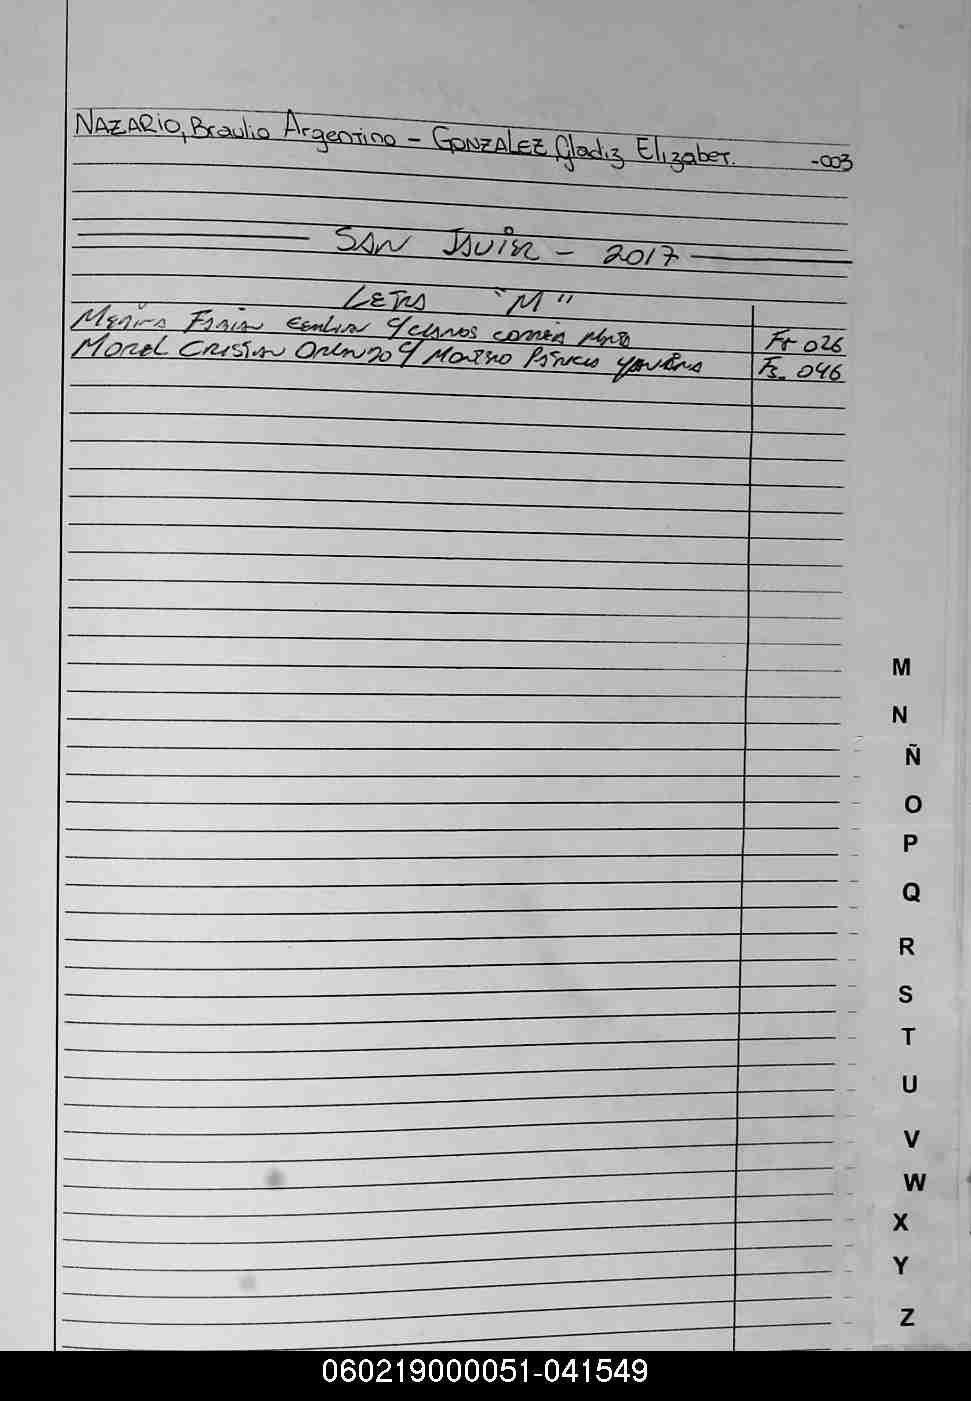 NAZARIO, Braulio Argentino - GONZALEZ, Gladiz Elizabet. -003
SAN JAVIER - 2017
LETRA "M"
C/ Fs 026
MOREL CRISTIAN ORLANDO C/ MOREIRO PATRICIA YANINA Fs. 046
M
N
Ñ
O
P
Q
R
S
T
U
V
W
X
Y
Z
060219000051-041549